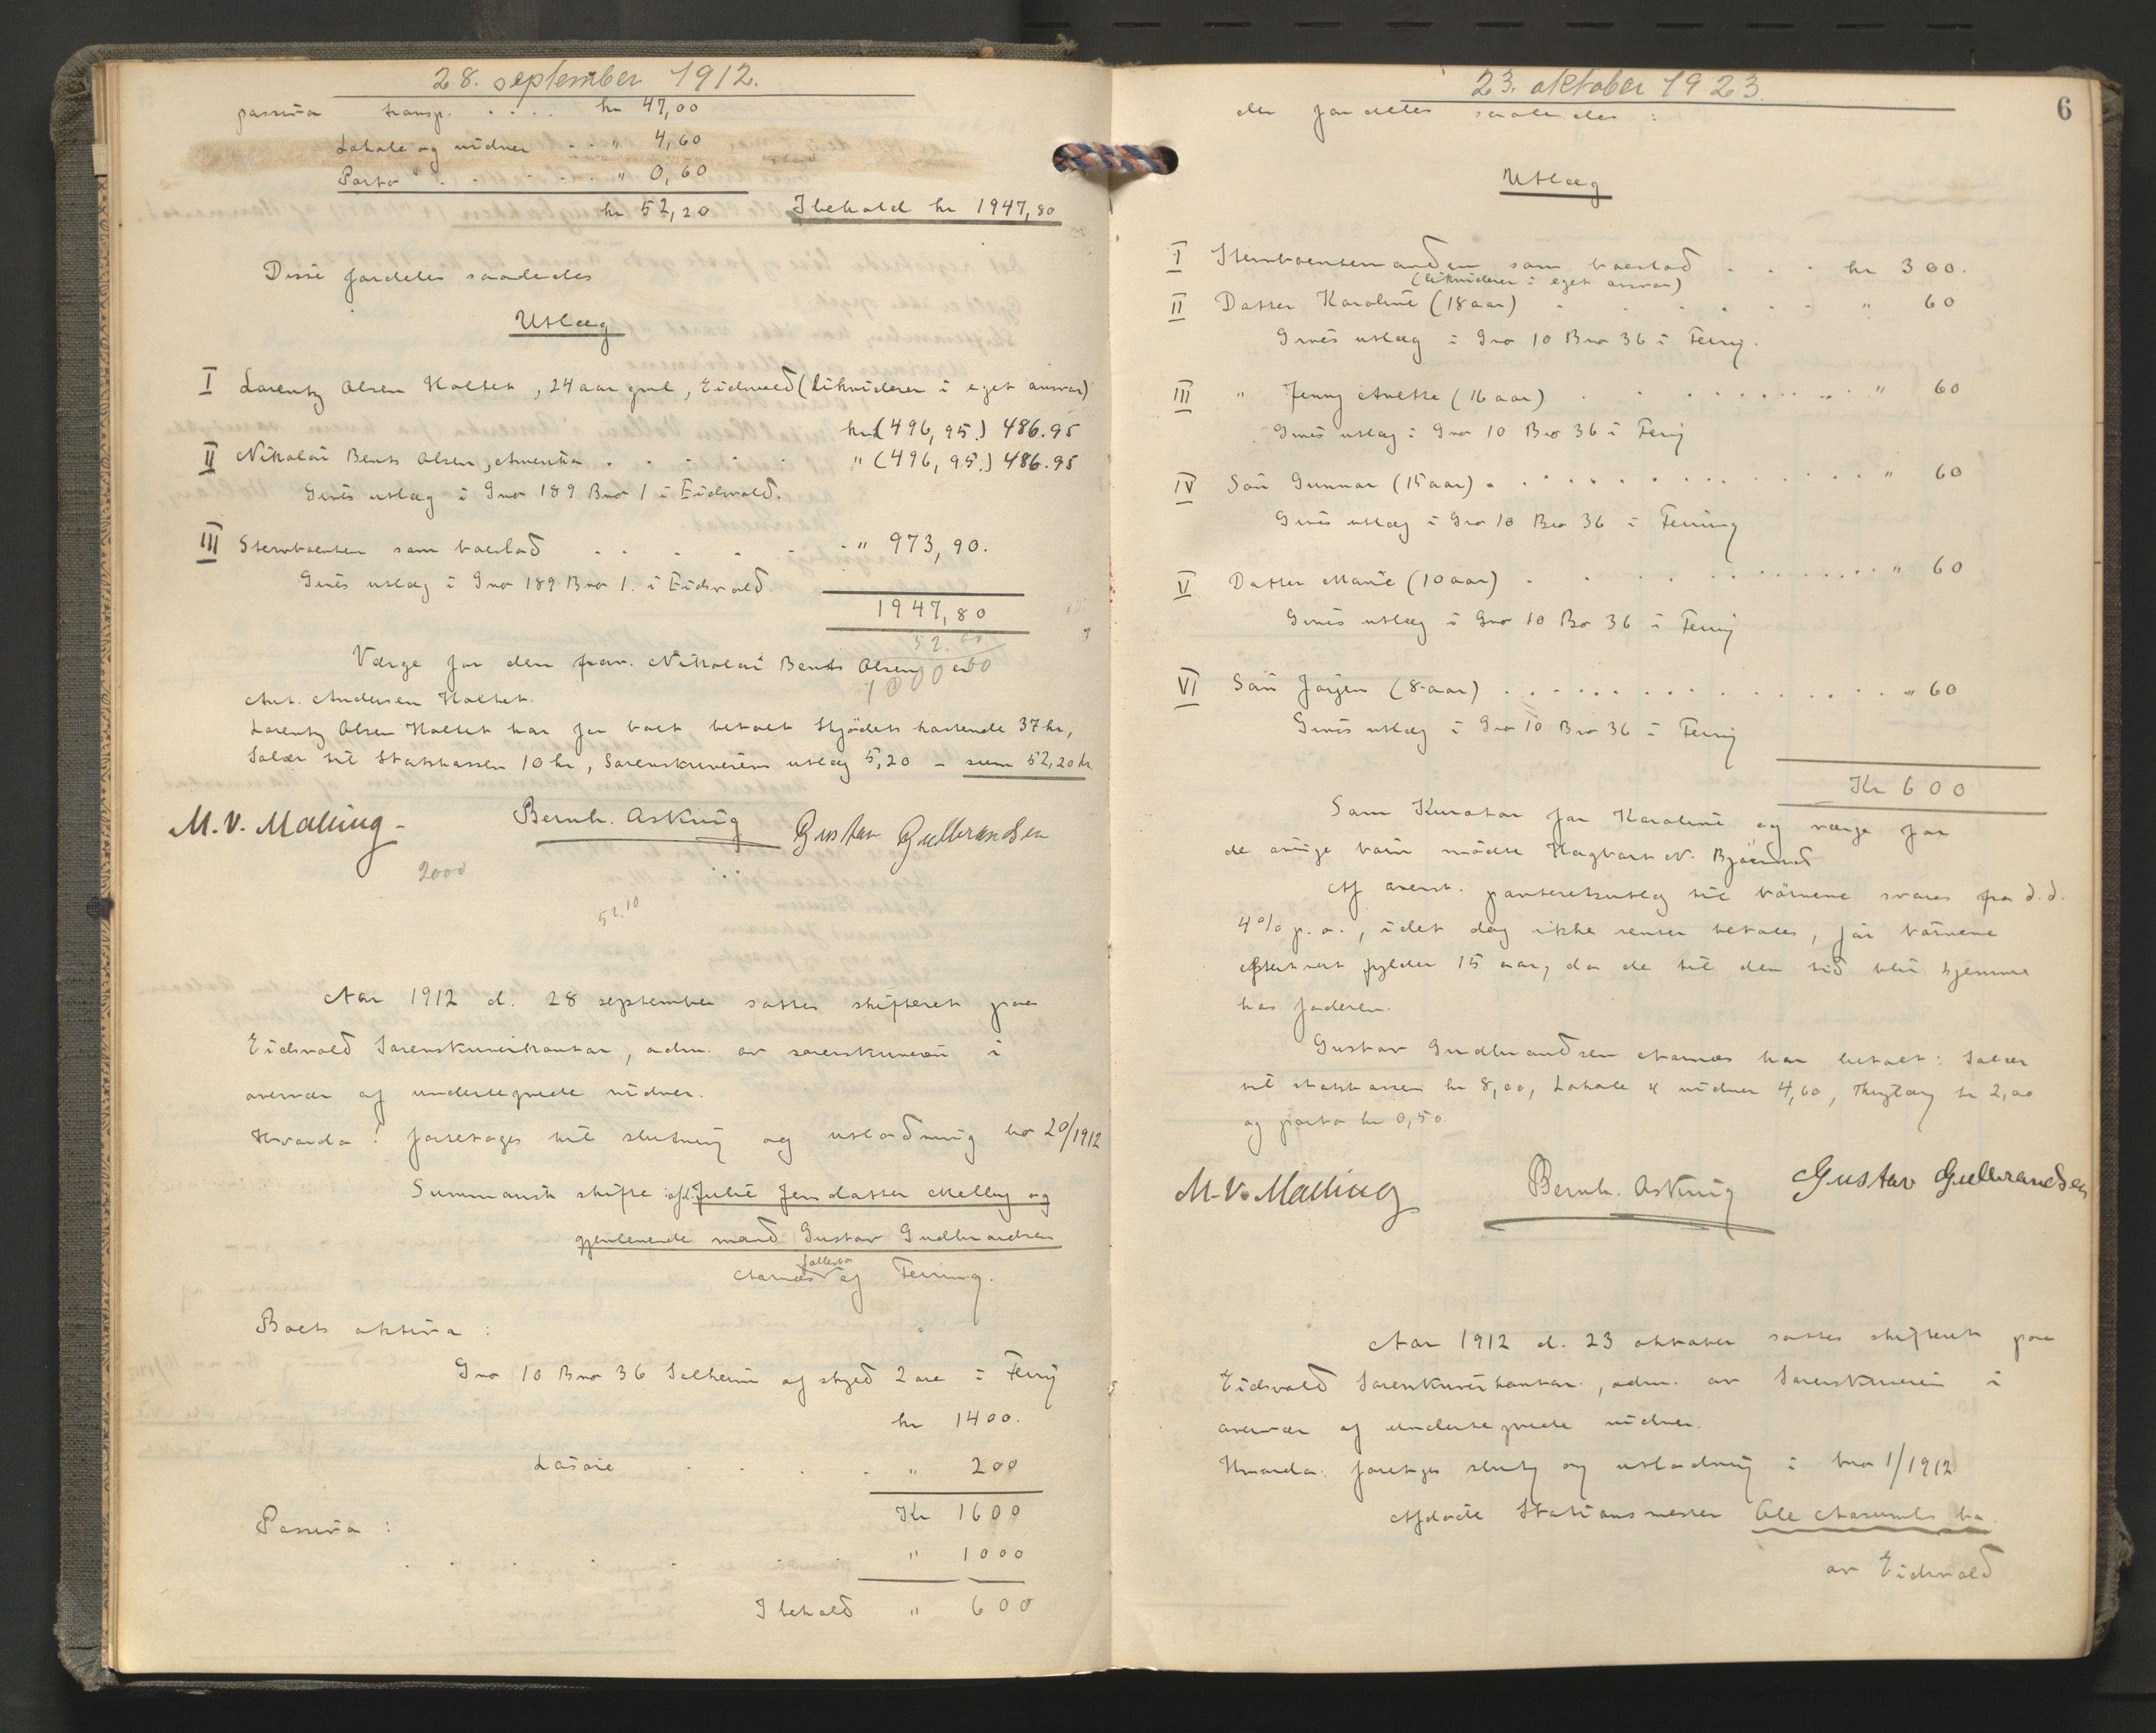 28. september 1912.
passiva transp. . . . . kr 47,00
Lokale og vidner . . " 4,60
Porto . . . . . . " 0,60
kr 52,20 I behold kr 1947,80
Disse fordeles saaledes
Utlæg
I Lorentz Olsen Holtet, 24 aar gml, Eidsvold (likviderer i eget ansvar)
kr (496,95.) 486.95
II Nikolai Bernts Olsen, Amerika . . . . . . " (496,95.) 486.95
Gives utlæg i Gno 189 Bno 1 i Eidsvold.
III Stervboenken som boeslod . . . . . . " 973,90.
Gives utlæg i Gno 189 Bno 1. i Eidsvold.
1947,80
52.
Værge for den frav. Nikolai Bernts Olsen er
Ant. Andersen Holtet.
Lorentz Olsen Holtet har for boet betalt Skjødets kostende 37 kr,
Salær til Statskassen 10 kr, Sorenskriverens utlæg 5,20 - sum 52,20 kr
M. V. Malling- Bernh. Askvig Gustav Gulbrandsen
2000
52.10
Aar 1912 d. 28 september sattes skifteret paa
Eidsvold Sorenskriverkontor, adm. av sorenskriveren i
overvær af undertegnede vidner.
Hvorda! foretoges til slutning og utlodning bo 20/1912
Summarisk skifte eft. Julie Jensdatter Melby og
gjenlevende mand Gustav Gudbrandsen
fællesbo
Aarnæs af Feiring.
Boets aktiva :
Gno 10 Bno 36 Solheim af skyld 2 øre i Feirig
kr 1400.
Løsøre . . . . " 200
Kr 1600
Passiva :
. . . . . . " 1000
I behold " 600
23. oktober 1923
6
der fordeles saaledes :
Utlæg
I Stervboenkemanden som boeslod . . . kr 300.
(likviderer i eget ansvar)
II Datter Karoline (18 aar) . . . . . . " 60
Gives utlæg i Gno 10 Bno 36 i Feirig.
III " Jenny Anette (16 aar) . . . . . . . . " 60
Gives utlæg i Gno 10 Bno 36 i Feirig
IV Søn Gunnar (15 aar) . . . . . . . . . . " 60
Gives utlæg i Gno 10 Bno 36 i Feiring
V Datter Marie (10 aar) . . . . . . . . . . " 60
Gives utlæg i Gno 10 Bno 36 i Feirig
VI Søn Jørgen (8 aar) . . . . . . . . . . . " 60
Gives utlæg i Gno 10 Bno 36 i Feirig
Kr 600
Som Kurator for Karoline og værge for
de øvrige børn mødte Hagbart N. Bjørnstad
Af ovenst. panteretsutlæg til børnene svares fra d.d.
4% p.a., idet dog ikke renter betales, før børnene
efterhvert fylder 15 aar, da de til den tid blir hjemme
hos faderen.
Gustav Gudbrandsen Aarnæs har betalt: Salær
til statskassen kr 8,00, Lokale & vidner 4,60, Thinglæs kr 2,00
og porto kr 0,50.
M. V. Malling Bernh. Askvig Gustav Gulbrandsen
Aar 1912 d. 23 oktober sattes skifteret paa
Eidsvold Sorenskriverkontor, adm. av Sorenskriveren i
overvær af undertegnede vidner.
Hvorda: foretoges slutg og utlodning i bno 1/1912
Afdøde Stationsmester Ole bo.
av Eidsvold